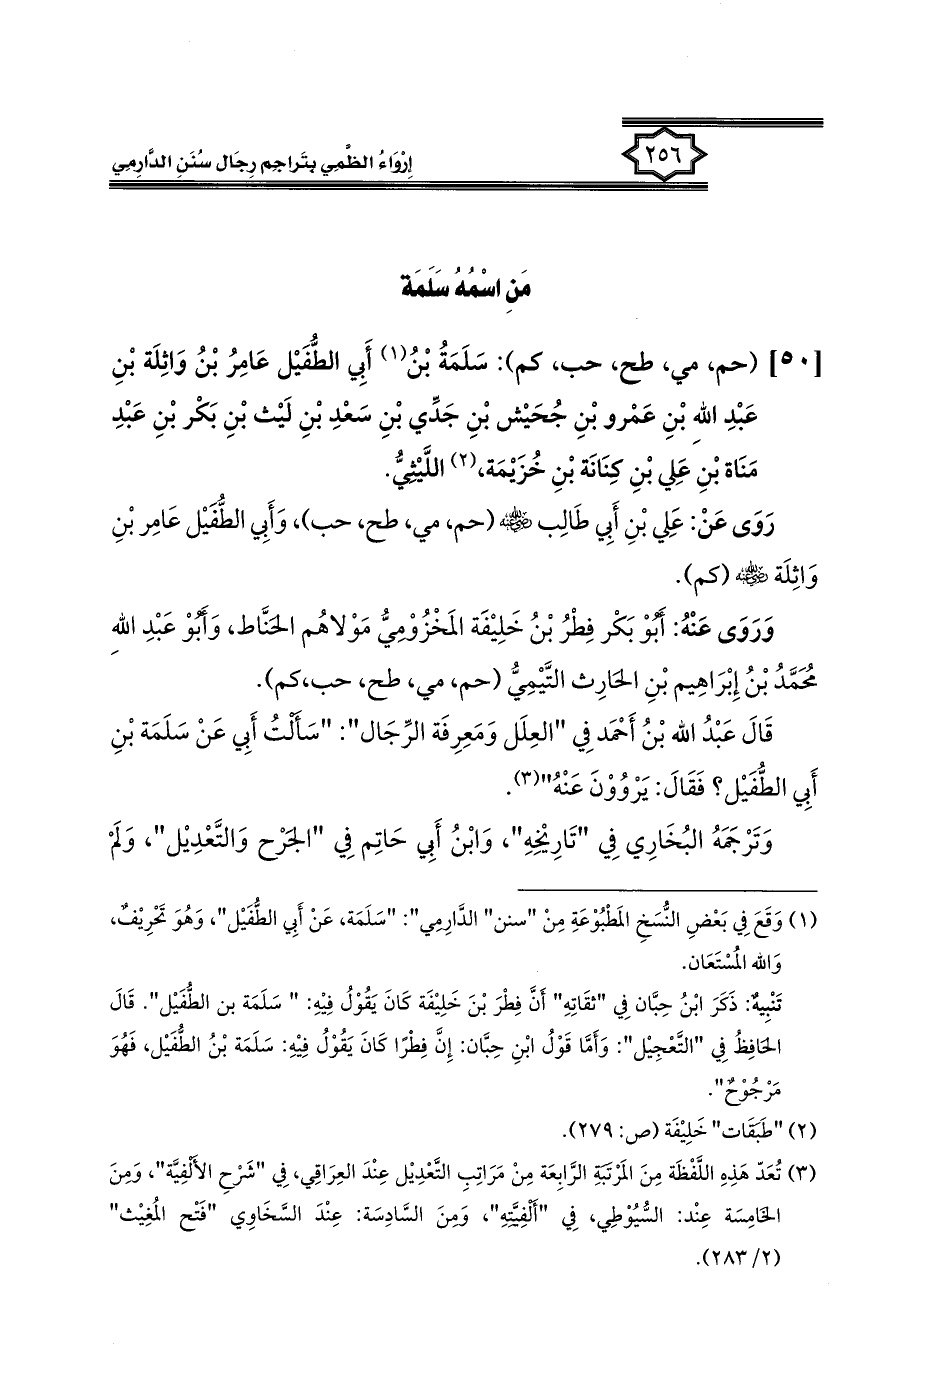 ٢٥٦
إِرْوَاءُ الظَّمِي بِتَراجِم رِجَال سُنَنِ الدَّارِمِي
مَنِ اسْمُهُ سَلَمَة
[٥٠] (حم، مي، طح، حب، كم): سَلَمَةُ بْنُ(١) أَبِي الطُّفَيْل عَامِرُ بْنُ وَاثِلَة بْنِ
عَبْدِ اللهِ بْنِ عَمْرو بْنِ جُحَيْش بْنِ جَدِّي بْنِ سَعْدِ بْنِ لَيْث بْنِ بَكْر بْنِ عَبْدِ
مَنَاة بْنِ عَلِي بْنِ كِنَانَة بْنِ خُزَيْمَة،(٢) اللَّيْثِيُّ.
رَوَى عَنْ: عَلِي بْنِ أَبِي طَالِب رضي الله عنه (حم، مي، طح، حب)، وَأَبِي الطُّفَيْل عَامِر بْنِ
وَاثِلَة رضي الله عنه (كم).
وَرَوَى عَنْهُ: أَبُوْ بَكْر فِطْرُ بْنُ خَلِيْفَة المَخْزُوْمِيُّ مَوْلَاهُم الحَنَّاط، وَأَبُوْ عَبْدِ اللهِ
مُحَمَّدُ بْنُ إِبْرَاهِيم بْنِ الحَارِث التَّيْمِيُّ (حم، مي، طح، حب،كم).
قَالَ عَبْدُ الله بْنُ أَحْمَد فِي "العِلَل وَمَعِرفَة الرِّجَال": "سَأَلْتُ أَبِي عَنْ سَلَمَة بْنِ
أَبِي الطُّفَيْل؟ فَقَالَ: يَرْوُوْنَ عَنْهُ"(٣).
وَتَرْجَمَهُ البُخَارِي فِي "تَارِيْخِهِ"، وَابْنُ أَبِي حَاتِم فِي "الجَرْح وَالتَّعْدِيْل"، وَلَمْ
(١) وَقَعَ فِي بَعْضِ النُّسَخِ المَطْبُوْعَةِ مِنْ "سنن" الدَّارِمِي": "سَلَمَة، عَنْ أَبِي الطُّفَيْل"، وَهُوَ تَحْرِيْفٌ،
وَالله المُسْتَعَان.
تَنْبِيةٌ: ذَكَرَ ابْنُ حِبَّان فِي "ثقَاتِهِ" أَنَّ فِطْرَ بْنَ خَلِيْفَة كَانَ يَقُوْلُ فِيْهِ: " سَلَمَة بن الطُّفَيْل". قَالَ
الحَافِظُ فِي "التَّعْجِيْل": وَأَمَّا قَوْلُ ابْنِ حِبَّان: إِنَّ فِطْرًا كَانَ يَقُوْلُ فِيْهِ: سَلَمَة بْنُ الطُّفَيْل، فَهُوَ
مَرْجُوْحٌ".
(٢) "طَبَقَات" خَلِيْفَة (ص: ٢٧٩).
(٣) تُعَدّ هَذِهِ اللَّفْظَة مِنَ المَرْتَبَةِ الرَّابِعَة مِنْ مَرَاتِبِ التَّعْدِيْل عِنْدَ العِرَاقِي، فِي "شَرْح الأَلْفِيَّة"، وَمِنَ
الخَامِسَة عِنْد: السُّيُوْطِي، فِي "أَلْفِيَّتِهِ"، وَمِنَ السَّادِسَة: عِنْدَ السَّخَاوِي "فَتْح المُغِيْث"
(٢/ ٢٨٣).